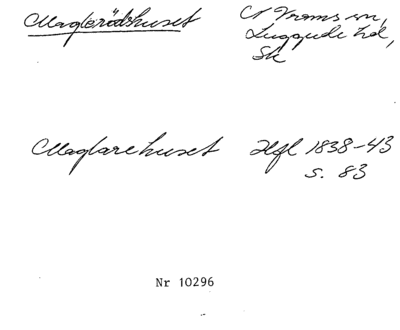 Maglerödshuset N Vrams sn,
Luggude hd,
Sk
Maglarehuset Hfl 1838-43
s. 83
Nr 10296